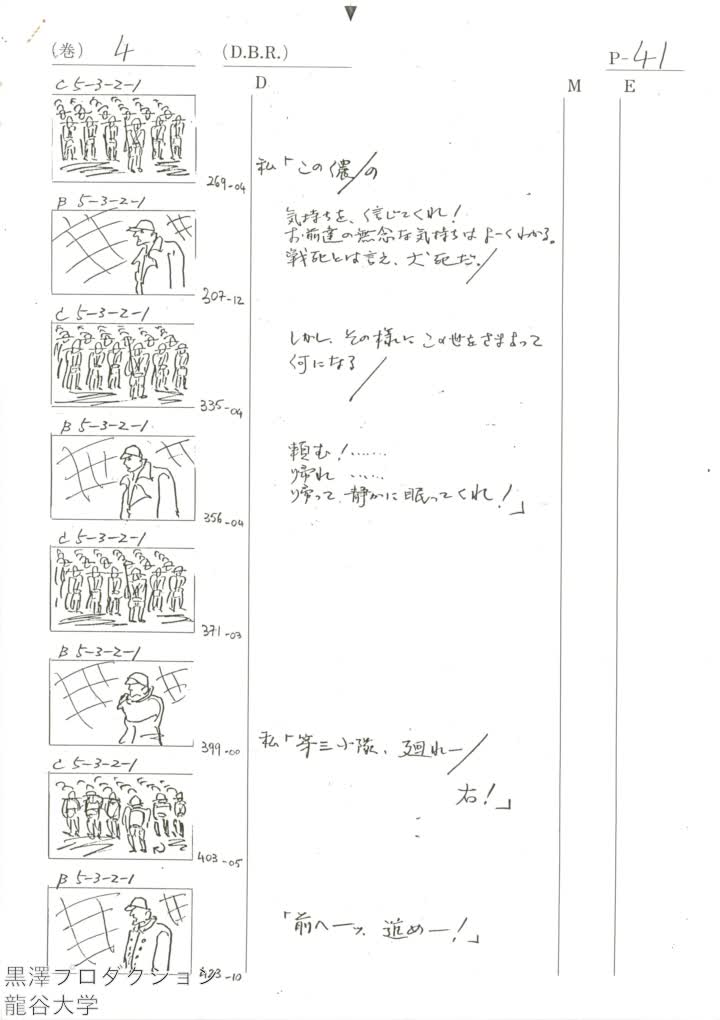 (巻) 4 (D.B.R.) P-41
D M E
C 5-3-2-1
269-04
私「この儂/の
B 5-3-2-1
307-12
気持ちを、信じてくれ!
お前達の無念な気持ちはよーくわかる。
戦死とは言え、犬死だ。/
C 5-3-2-1
335-04
しかし、その様に この世をさまよって
何になる/
B 5-3-2-1
356-04
頼む!……
帰れ ……
帰って 静かに眠ってくれ!」
C 5-3-2-1
371-03
B 5-3-2-1
399-00
私「第三小隊、廻れー/
右!」
C 5-3-2-1
403-05
B 5-3-2-1
-10
「前へーッ 進めー!」
黒澤プロダクション
龍谷大学